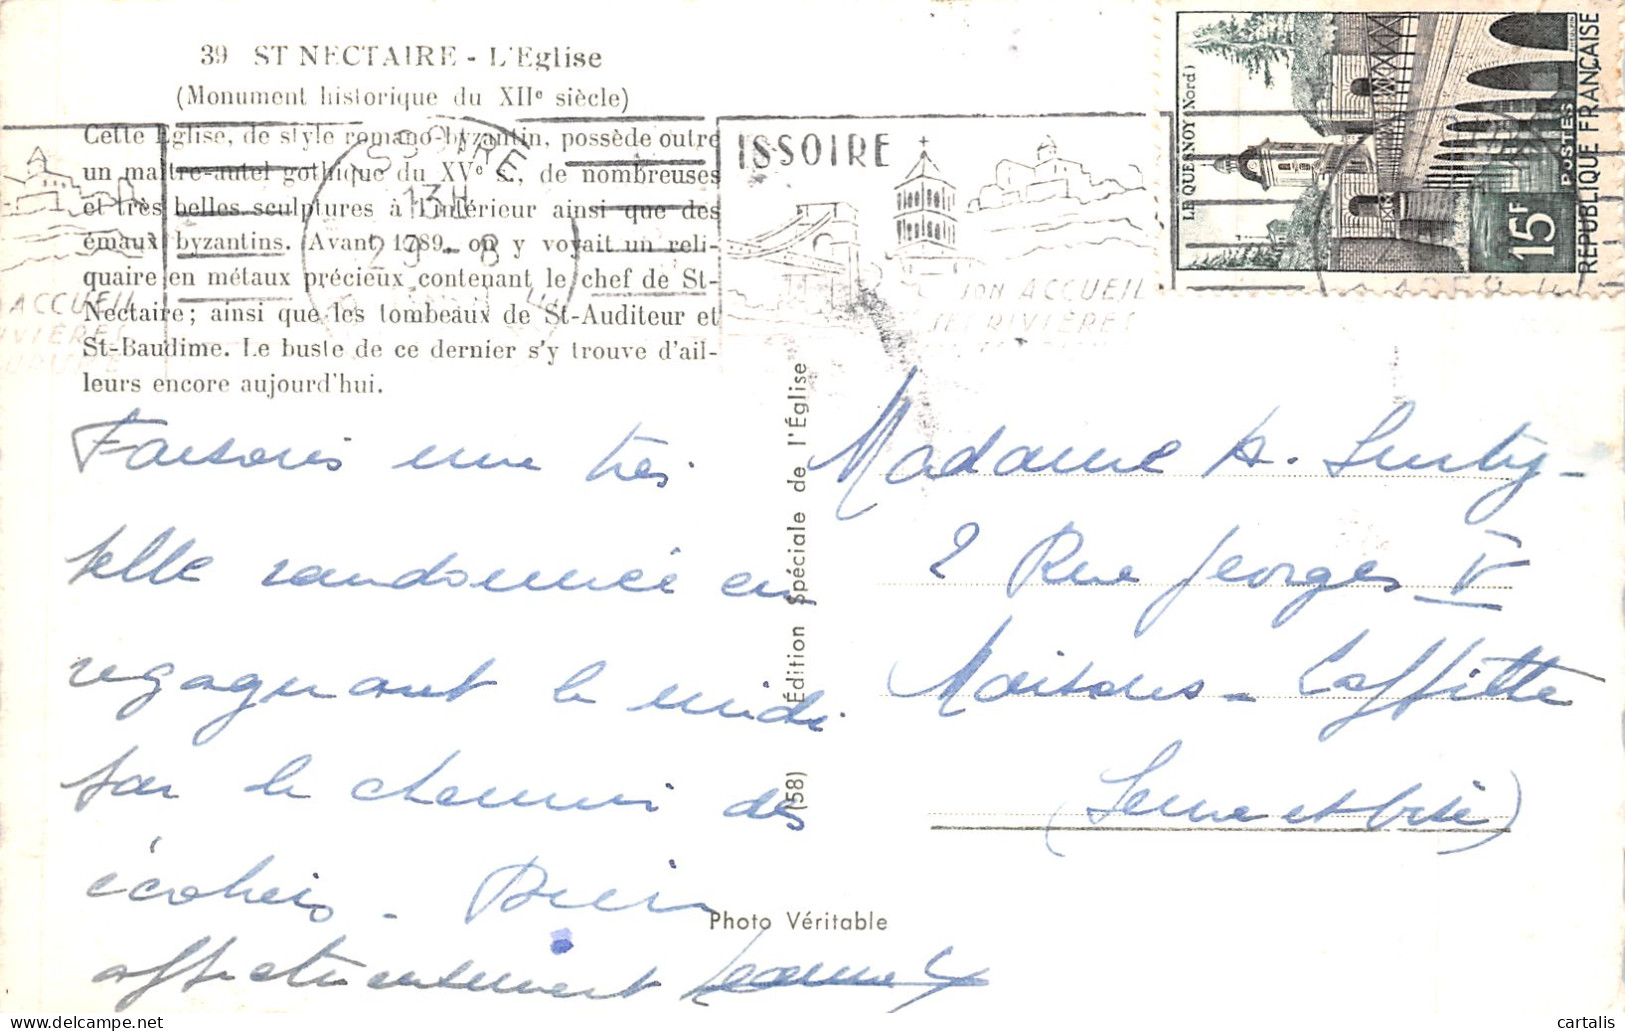 39 ST NECTAIRE - L'Eglise
(Monument historique du XIIe siècle)
Cette Eglise, de style romano-byzantin, possède outre
un maître-autel gothique du XVe s., de nombreuses
et très belles sculptures à l'intérieur ainsi que des
émaux byzantins. Avant 1789 on y voyait un reli-
quaire en métaux précieux contenant le chef de St-
Nectaire; ainsi que les tombeaux de St-Auditeur et
St-Baudime. Le buste de ce dernier s'y trouve d'ail-
leurs encore aujourd'hui.
ISSOIRE
13H
29-8
ACCUEIL
ISSOIRE
SON ACCUEIL
SES RIVIÈRES
LE QUESNOY (Nord)
15F
POSTES
REPUBLIQUE FRANÇAISE
Faisons une très
belle randonnée en
regagnant le midi
par le chemin des
écoliers - Bien
affectueusement
Édition Spéciale de l'Église
(58)
Photo Véritable
Madame
2 Rue Georges V
Maisons-Laffitte
(Seine et Oise)
cartalis
delcampe.net